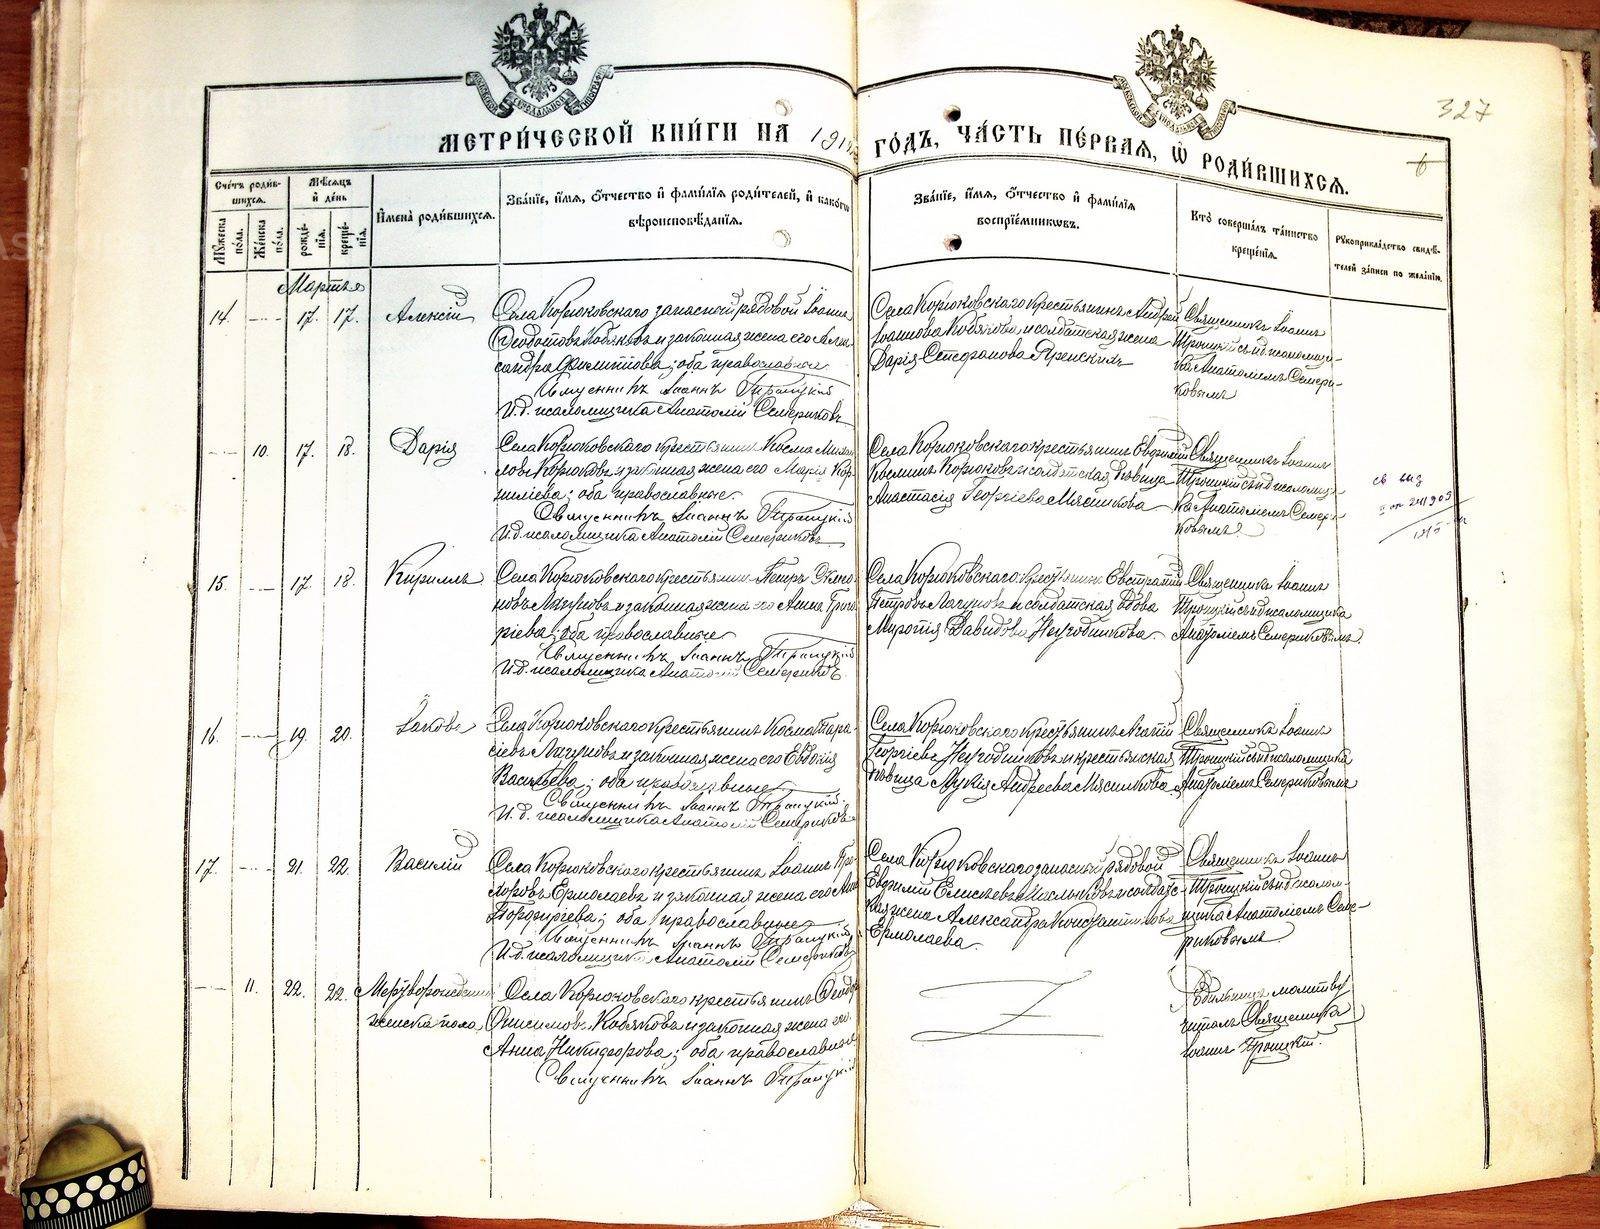 327
МЕТРИ́ЧЕСКОЙ КНИ́ГИ НА 191 ГО́ДЪ, ЧА́СТЬ ПЕ́РВАЯ, Ѡ РОДИ́ВШИХСЯ.
6
Сче́тъ роди́в-
шихся.
Мꙋ́жеска по́ла.
Же́нска по́ла.
Мѣ́сяцъ и де́нь
рожде́нїя.
креще́нїя.
Имена̀ роди́вшихся.
Зва́нїе, и́мя, ѻ́тчество и фами́лїя роди́телей, и како́гѡ
вѣроисповѣ́данїя.
Зва́нїе, и́мя, ѻ́тчество и фами́лїя
воспрїе́мникѡвъ.
Кто̀ соверша́лъ та́инство
креще́нїя.
Рꙋкоприкла́дство свидѣ́-
телей за́писи по жела́нїю.
Мартъ
14. 17. 17. Алексій
Села Корюковскаго запасной рядовой Іоаннъ
Ѳеодотовъ Кобяковъ и законная жена его Алек-
сандра Филиппова; оба православные
Священникъ Іоаннъ Троицкій
И.д. псаломщика Анатолій Семериковъ
Села Корюковскаго крестьянинъ Андрей
Іоанновъ Кобяковъ и солдатская жена
Дарія Стефанова
Священникъ Іоаннъ
Троицкій съ ид псаломщи-
ка Анатоліемъ Семери-
ковымъ
10. 17. 18. Дарія
Села Корюковскаго крестьянинъ Косма Михаи-
ловъ Корюковъ и законная жена его Марія Кор-
ниліева; оба православные.
Священникъ Іоаннъ Троицкій
И.д. псаломщика Анатолій Семериковъ
Села Корюковскаго крестьянинъ Евфимій
Косминъ Корюковъ и солдатская дѣвица
Анастасія Георгіева Мясникова
Священникъ Іоаннъ
Троицкій съ ид псаломщи-
ка Анатоліемъ Семери-
ковымъ.
15. 17. 18. Кириллъ
Села Корюковскаго крестьянинъ Петръ
Лагуновъ и законная жена его Анна Григо-
ріева; оба православные
Священникъ Іоаннъ Троицкій
И.д. псаломщика Анатолій Семериковъ.
Села Корюковскаго крестьянинъ Евстратій
Петровъ Лагуновъ и солдатская вдова
Миропія Давидова Неугодникова
Священникъ Іоаннъ
Троицкій съ ид псаломщика
Анатоліемъ Семериковымъ.
16. 19. 20. Іаковъ
Села Корюковскаго крестьянинъ Косма Тара-
сіевъ Лагуновъ и законная жена его Евдокія
Васильева; оба православные
Священникъ Іоаннъ Троицкій.
И.д. псаломщика Анатолій Семериковъ
Села Корюковскаго крестьянинъ
Георгіевъ Неугодниковъ и крестьянская
дѣвица Лукія Андреева Мясникова
Священникъ Іоаннъ
Троицкій съ ид псаломщика
Анатоліемъ Семериковымъ
17. 21. 22. Василій
Села Корюковскаго крестьянинъ Іоаннъ
Ермолаевъ и законная жена его Анна
Порфиріева; оба православные
Священникъ Іоаннъ Троицкій
И.д. псаломщика Анатолій Семериковъ
Села Корюковскаго запасной рядовой
Евфимій Елисѣевъ и солдатс-
кая жена Александра Константинова
Ермолаева.
Священникъ Іоаннъ
Троицкій съ ид псалом-
щика Анатоліемъ Семе-
риковымъ.
11. 22. 22. Мертворожденный
женска пола
Села Корюковскаго крестьянинъ Ѳеодоръ
Онисимовъ Кобяковъ и законная жена его
Анна Никифорова; оба православные
Священникъ Іоаннъ Троицкій
Родильницѣ молитву
читалъ Священникъ
Іоаннъ Троицкій.